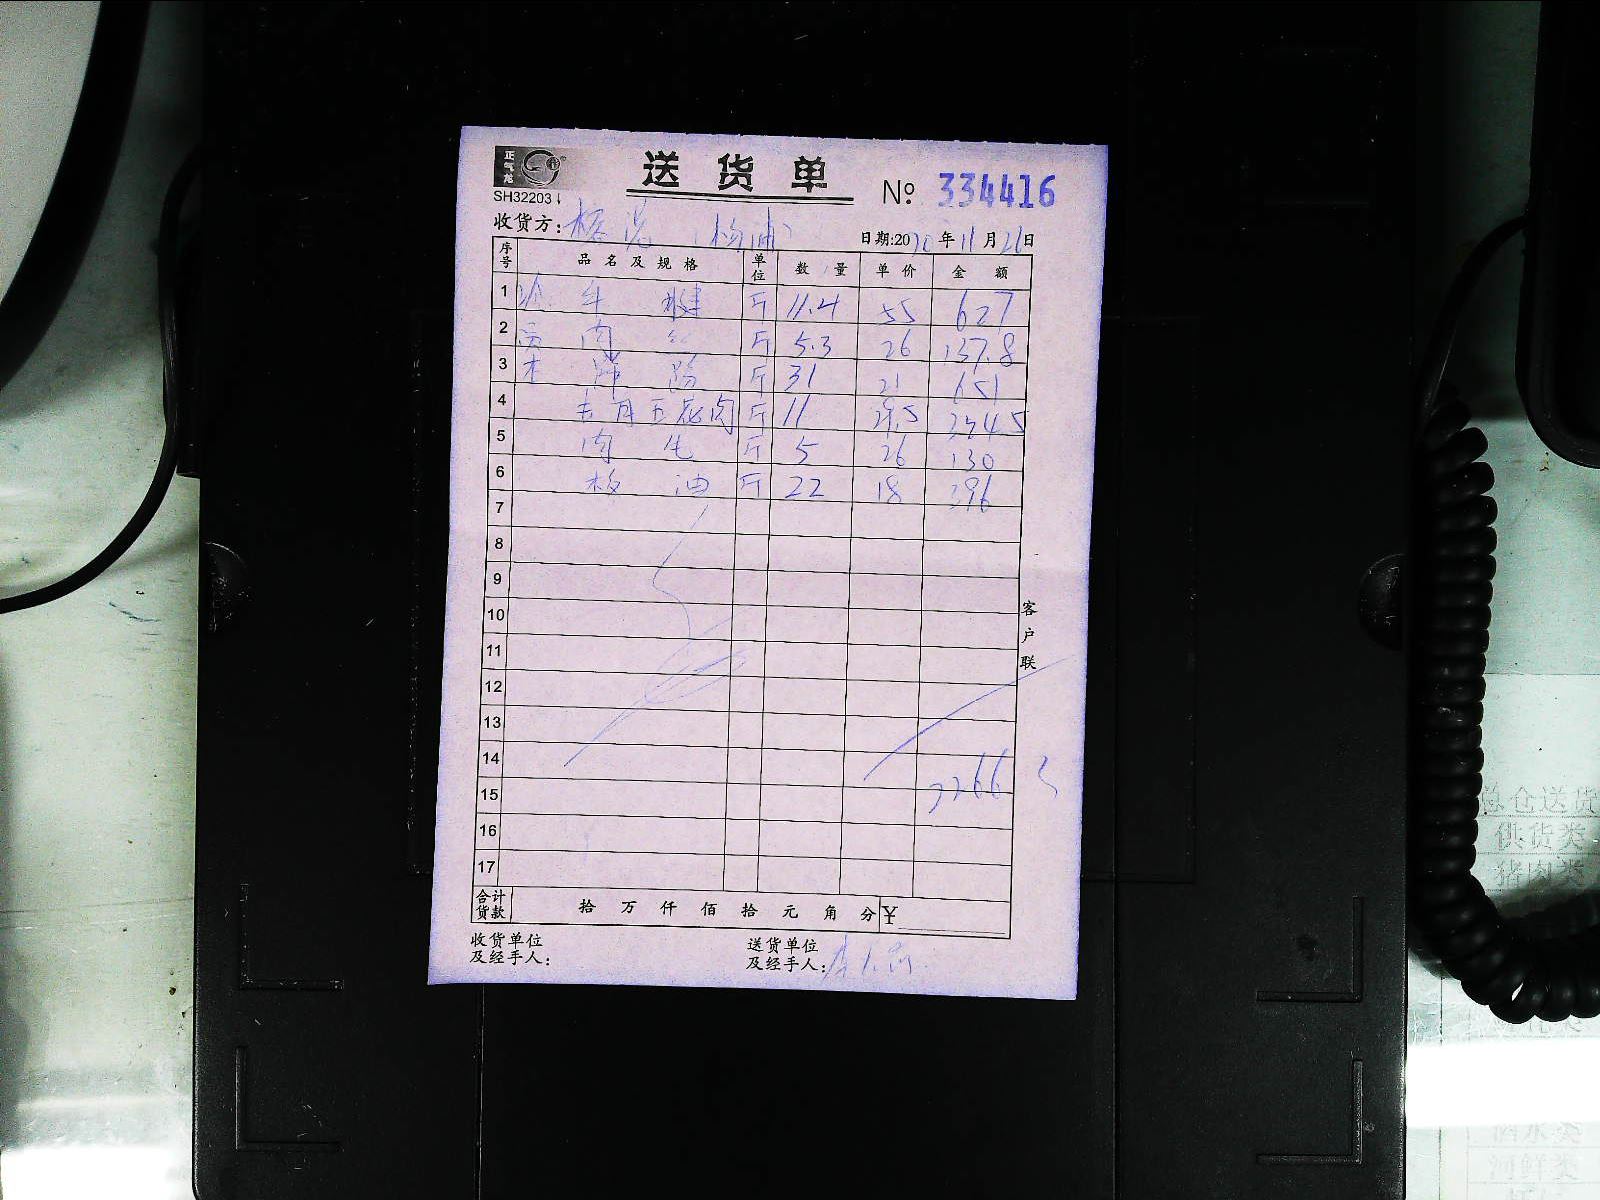 正气龙
送货单
SH32203
№ 334416
收货方: (杨浦)
日期:2020年11月21日
序号 品名及规格 单位 数量 单价 金额
1 牛腱 斤 11.4 55 627
2 肉丝 斤 5.3 26 137.8
3 斤 31 21 651
4 五花肉 斤 11 29.5 324.5
5 肉 斤 5 26 130
6 板油 斤 22 18 396
7
8
9
10
11
12
13
14
2266 3
15
16
17
客户联
合计货款 拾万仟佰拾元角分 ¥
收货单位及经手人:
送货单位及经手人:
总仓送货
供货类
猪肉类
酒水类
河鲜类